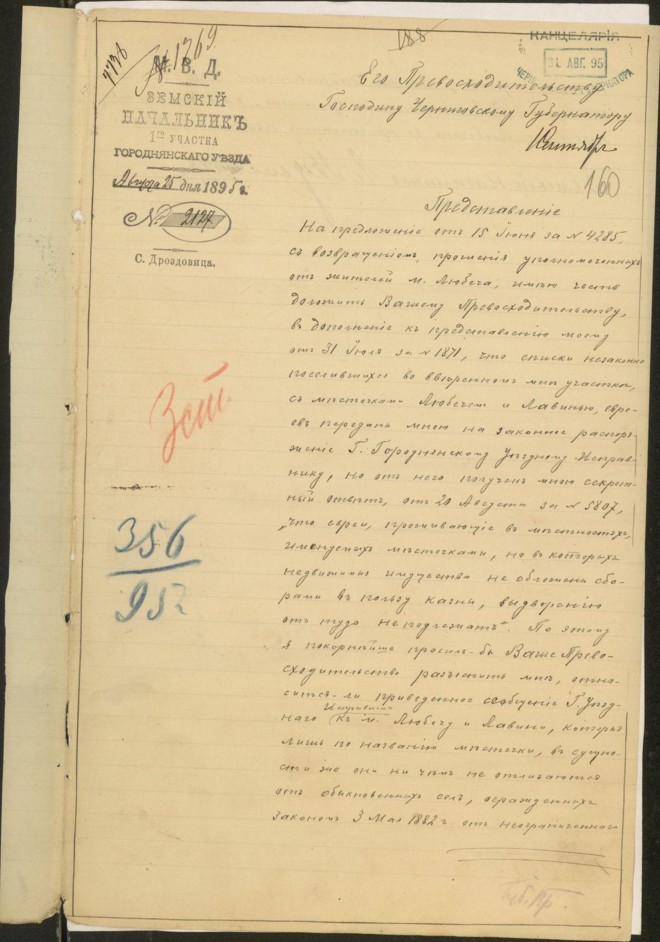 188
КАНЦЕЛЯРІЯ
31 АВГ. 95
М. В. Д.
ЗЕМСКІЙ
НАЧАЛЬНИКЪ
1го УЧАСТКА
ГОРОДНЯНСКАГО УѢЗДА
Августа 25 дня 1895 г.
№ 2127
С. Дроздовица.
Зст
356
95
Его Превосходительству
Господину Черниговскому Губернатору
160
Представленіе
На предложеніе отъ 15 Іюня за № 4285,
съ возвращеніемъ прошенія уполномоченныхъ
отъ жителей м. Любеча, имѣю честь
доложить Вашему Превосходительству,
въ дополненіе къ представленію моему
отъ 31 Іюля за № 1871, что списки незаконно
поселившихся во ввѣренномъ мнѣ участкѣ,
съ мѣстечками Любечем и Лавинью, евре-
евъ переданъ мною на законное распоря-
женіе Г. Городнянскому Уѣздному Исправ-
нику, но отъ него полученъ мною секрет-
ный отвѣтъ, отъ 20 Августа за № 5807,
„что евреи, проживающіе въ мѣстностяхъ,
именуемыхъ мѣстечками, но въ которыхъ
недвижимыя имущества не обложены сбо-
рами въ пользу казны, выдворенію
отъ туда не подлежатъ“. По этому
я покорнѣйше просилъ-бы Ваше Прево-
сходительство разъяснить мнѣ, отно-
сится-ли приведенное сообщеніе Г. Уѣзд-
наго Исправника къ м. Любечу и Лавини, которыя
лишь по названію мѣстечки, въ сущно-
сти же они ни чѣмъ не отличаются
отъ обыкновенныхъ селъ, огражденныхъ
закономъ 3 Мая 1882 г. отъ неограниченнаго